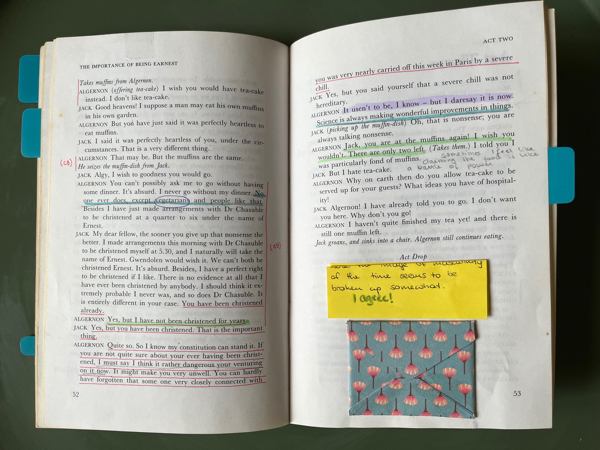 THE IMPORTANCE OF BEING EARNEST
Takes muffins from Algernon.
ALGERNON (offering tea-cake) I wish you would have tea-cake
instead. I don't like tea-cake.
JACK Good heavens! I suppose a man may eat his own muffins
in his own garden.
ALGERNON But you have just said it was perfectly heartless to
eat muffins.
JACK I said it was perfectly heartless of you, under the cir-
cumstances. That is a very different thing.
ALGERNON That may be. But the muffins are the same.
He seizes the muffin-dish from Jack.
JACK Algy, I wish to goodness you would go.
ALGERNON You can't possibly ask me to go without having
some dinner. It's absurd. I never go without my dinner. No
one ever does, except vegetarians and people like that.
Besides I have just made arrangements with Dr Chasuble
to be christened at a quarter to six under the name of
Ernest.
JACK My dear fellow, the sooner you give up that nonsense the
better. I made arrangements this morning with Dr Chasuble
to be christened myself at 5.30, and I naturally will take the
name of Ernest. Gwendolen would wish it. We can't both be
christened Ernest. It's absurd. Besides, I have a perfect right
to be christened if I like. There is no evidence at all that I
have ever been christened by anybody. I should think it ex-
tremely probable I never was, and so does Dr Chasuble. It
is entirely different in your case. You have been christened
already.
ALGERNON Yes, but I have not been christened for years.
JACK Yes, but you have been christened. That is the important
thing.
ALGERNON Quite so. So I know my constitution can stand it. If
you are not quite sure about your ever having been christ-
ened, I must say I think it rather dangerous your venturing
on it now. It might make you very unwell. You can hardly
have forgotten that some one very closely connected with
52
ACT TWO
you was very nearly carried off this week in Paris by a severe
chill.
JACK Yes, but you said yourself that a severe chill was not
hereditary.
ALGERNON It usen't to be, I know – but I daresay it is now.
Science is always making wonderful improvements in things.
JACK (picking up the muffin-dish) Oh, that is nonsense; you are
always talking nonsense.
ALGERNON Jack, you are at the muffins again! I wish you
wouldn't. There are only two left. (Takes them.) I told you I
was particularly fond of muffins.
JACK But I hate tea-cake.
ALGERNON Why on earth then do you allow tea-cake to be
served up for your guests? What ideas you have of hospital-
ity!
JACK Algernon! I have already told you to go. I don't want
you here. Why don't you go!
ALGERNON I haven't quite finished my tea yet! and there is
still one muffin left.
Jack groans, and sinks into a chair. Algernon still continues eating.
Act Drop
of the time seems to be
broken up somewhat.
I agree!
53